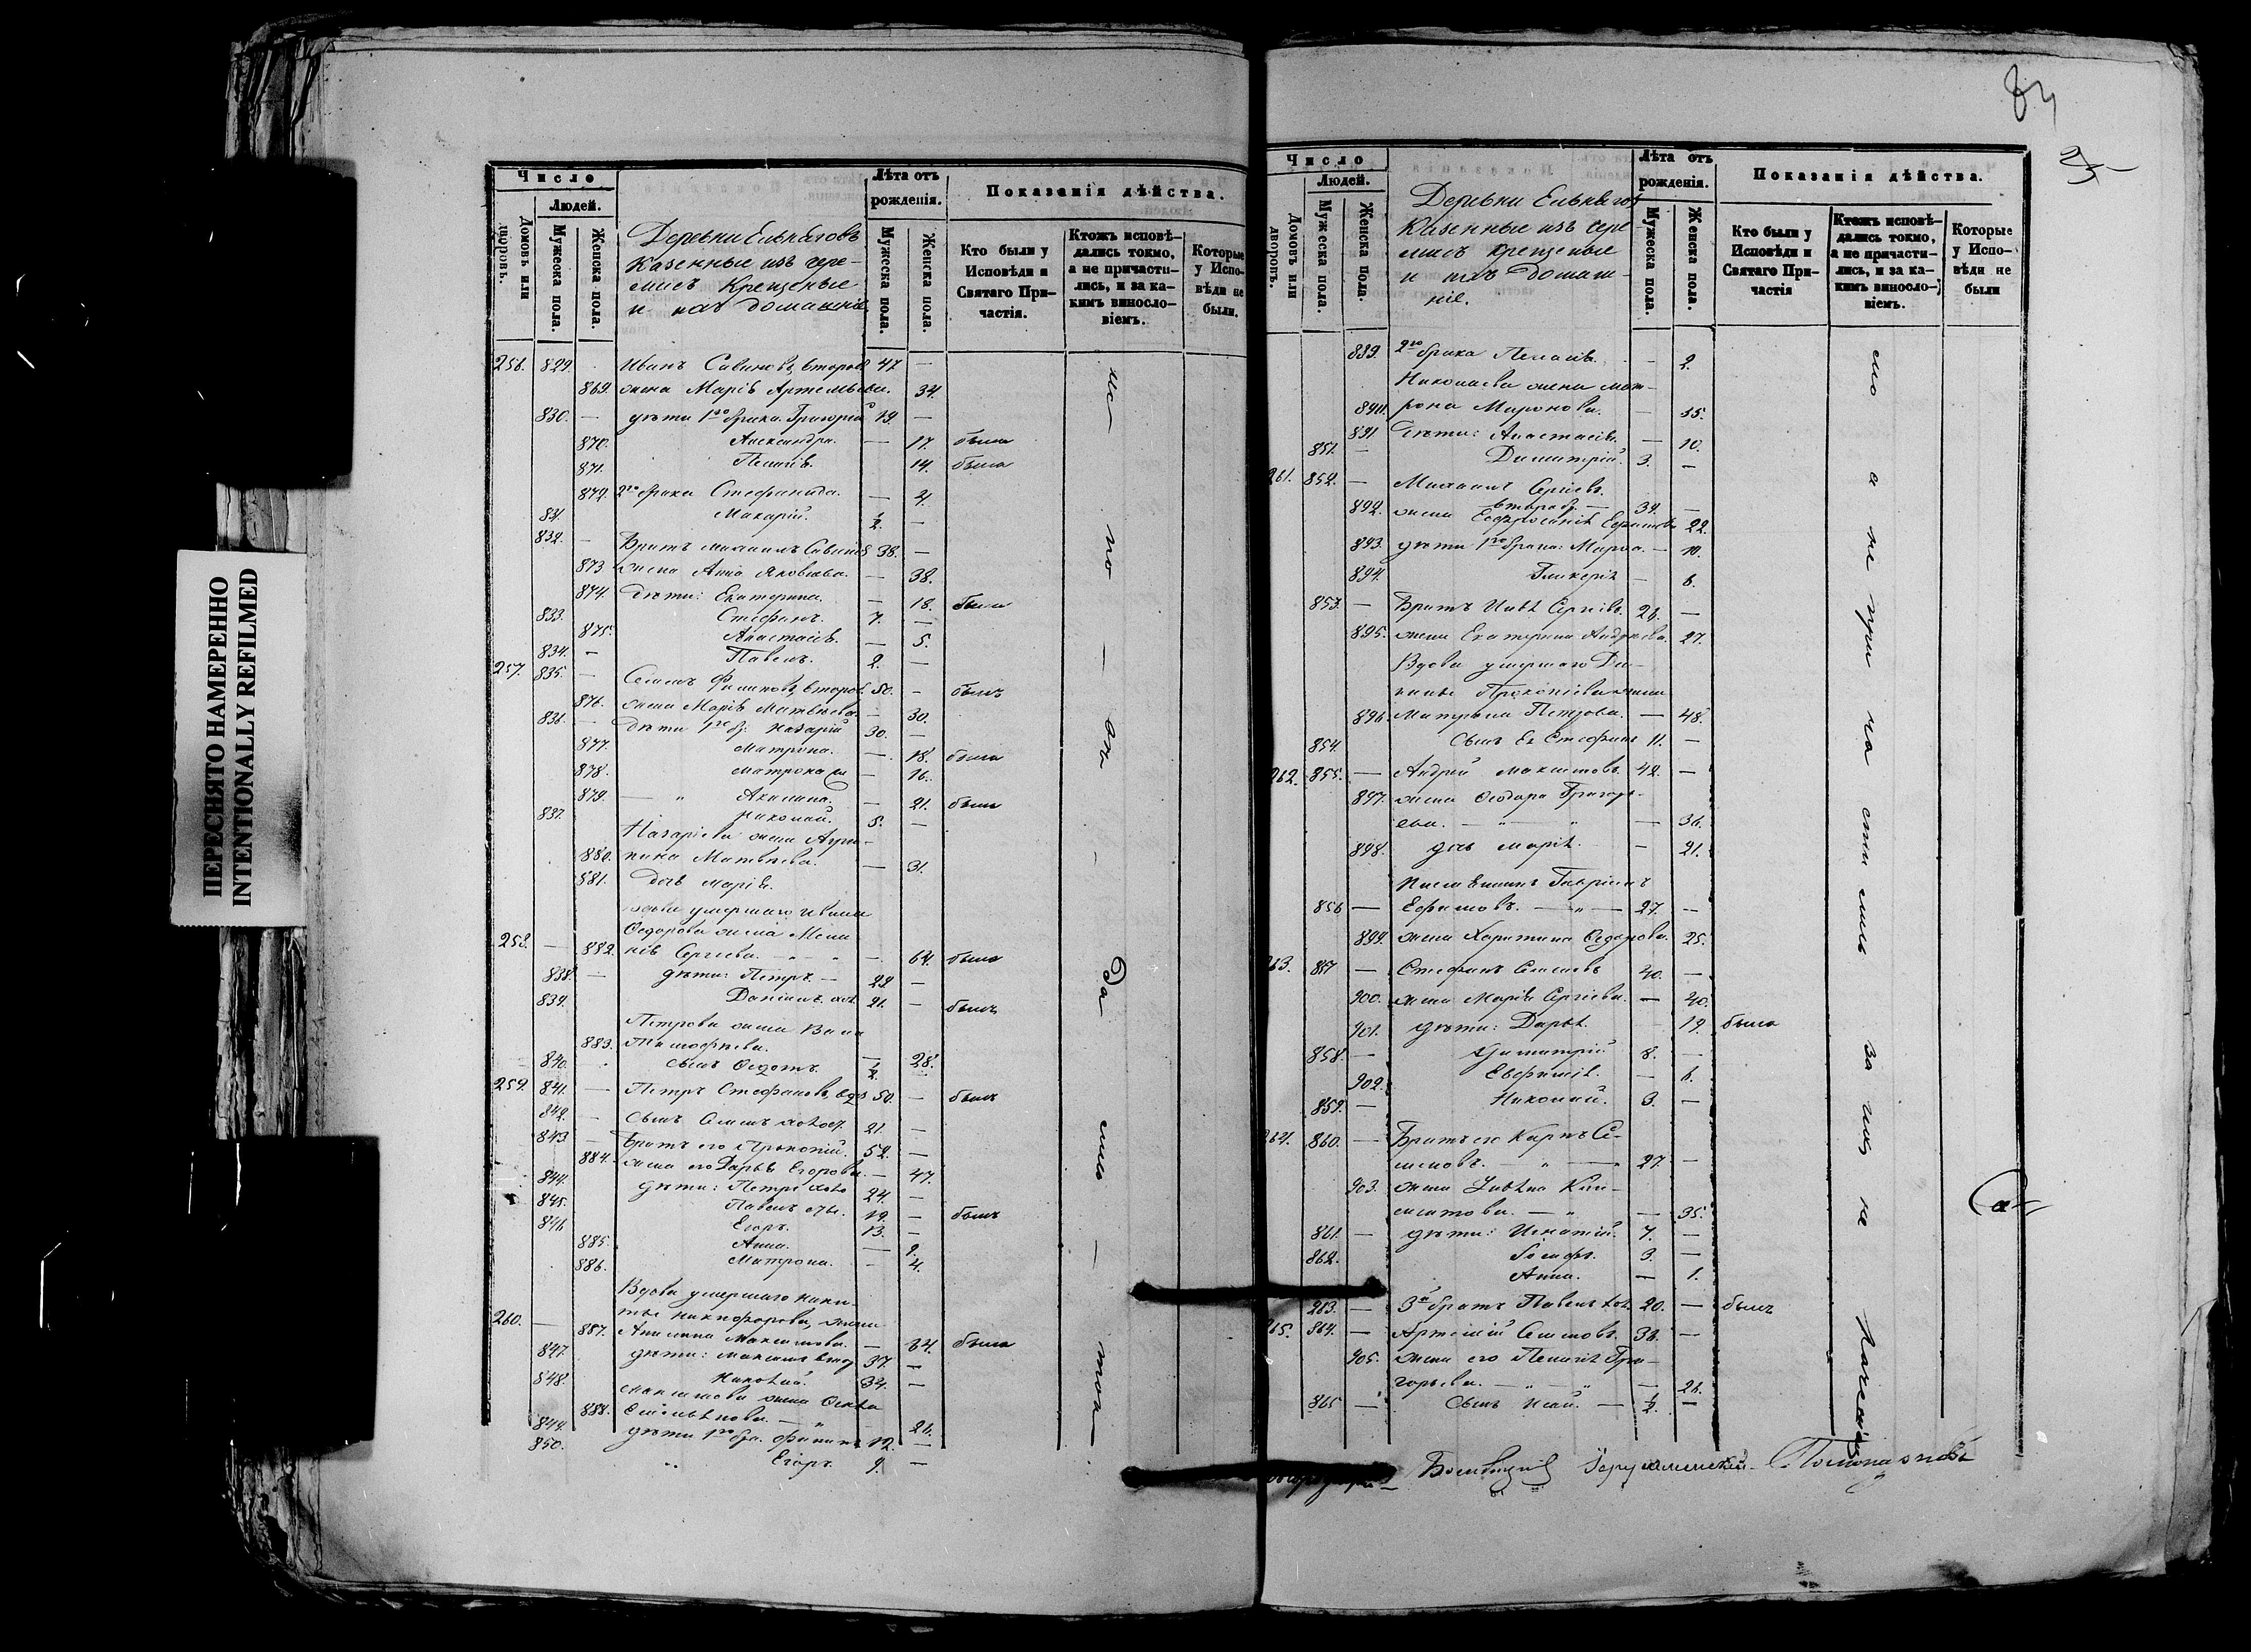 ПЕРЕСНЯТО НАМЕРЕННО
INTENTIONALLY REFILMED
Число
Людей.
Домовъ или дворовъ.
Мужеска пола.
Женска пола.
Деревни
Казенные изъ чере-
мисъ крещеные
и домашніе
Лѣта отъ рожденія.
Мужеска пола.
Женска пола.
Показанія дѣйства.
Кто были у Исповѣди и Святаго При-частія.
Ктожъ исповѣ-дались токмо, а не причасти-лись, и за ка-кимъ винословіемъ.
Которые у Испо-вѣди не были.
256. 829. Иванъ Савиновъ, второб. 47 —
869. жена Марія Артемьева. 34.
830. — дѣти 1го брака. Григорій 19. —
870. Александра. — 17. была
871. Пелагія. 14. была
872. 2го брака Стефанида. — 4.
831. Макарій. 1/2. —
832. — Братъ Михаилъ Савиновъ 38. —
873. жена Анна Яковлева. — 38.
874. Дѣти: Екатерина. — 18. была
833. Стефанъ. 7. —
875. Анастасія. — 5.
834. — Павелъ. 2. —
257. 835. — Семенъ Филиповъ, второб. 50. — былъ
876. жена Марія Матвѣева. — 30.
836. — Дѣти 1го бр. Назарій 30. —
877. Матрона. — 18. была
878. Матрона — 16.
879. — „ Акилина. — 21. была
837. Николай. 5. —
Назарієва жена Агри-
880. пина Матвѣева. — 31.
881. Дочь Марія.
Вдова умершаго Ивана
Ѳедорова жена Мела
258. — 882. нія Сергѣева. — 64. была
838. — дѣти: Петръ. — 22 —
839. Даніилъ хол. 21. — былъ
Петрова жена Васса
883. Тимофѣева. — 28.
840. сынъ Ѳедотъ. 1/2.
259. 841. — Петръ Стефановъ, вдов 50. — былъ
842. — Сынъ Семенъ холост. 21. —
843 — Братъ его Прокопій. 52. —
884. жена его Дарья Егорова. — 47.
844. дѣти: Петръ холо 24. —
845. Павелъ 19. — былъ
846 Егоръ. 13. —
885. Анна. — 9.
886. Матрона. — 4.
Вдова умершаго Ники-
ты Никифорова, жена
260. — 887. Акилина Максимова. — 64. была
847. дѣти: Максимъ втор 37. —
848. Николай. 34. —
Максимова жена Ѳекла
888. Емельянова. — „ 26.
849. дѣти 1го бра. Филипъ 12. —
850. „ Егоръ 9. —
84
25
Число
Людей.
Домовъ или дворовъ.
Мужеска пола.
Женска пола.
Деревни
Казенные изъ чере
мисъ крещеные
и домаш-
ніе.
Лѣта отъ рожденія.
Мужеска пола.
Женска пола.
Показанія дѣйства.
Кто были у Исповѣди и Святаго При-частія
Ктожъ исповѣ-дались токмо, а не причасти-лись, и за ка-кимъ винословіемъ.
Которые у Испо-вѣди не были
889. 2го брака Пелагія. — 2.
Николаева жена Мат-
890. рона Миронова. — 35.
891. Дѣти: Анастасія. — 10.
851. — Димитрій. 3. —
261. 852. — Михаилъ Сергѣевъ.
второбр. — 34. —
892. жена Евфросинія Ефимова 22.
893. дѣти 1го брака: Марѳа. — 10.
894. Гликерія — 6.
853. — Братъ Сергѣевъ. 26. —
895. жена Екатерина Андреева. 27.
Вдова умершаго Да-
ниила Прокопіева жена
896. Матрона Петрова. — 48.
854. Сынъ Ея Стефанъ 11. —
262. 855. — Андрей Максимовъ. 42. —
897. жена Ѳедора Григорь-
ева. — „ „ — 36.
898. дочь Марія. — 21.
Гавріилъ
856 — Ефимовъ. — „ — 27. —
899. жена Харитина Ѳедорова. 25.
263. 857 — Стефанъ Семеновъ 40. —
900. жена Марія Сергѣева. — 40.
901. дѣти: Дарья. 19. была
858. — Димитрій 8. —
902. Евфимія. — 6.
859. — Николай. 3. —
264. 860. — Братъ его Карпъ Се-
меновъ. — „ — 27. —
903. жена Кли-
ментова. — „ — 35.
861. — дѣти: Игнатій. 7. —
862. Іосифъ. 3. —
Анна. — 1.
863. — 3й братъ Павелъ хол. 20. — былъ
265. 864. — Артемій Семеновъ. 36. —
905. жена его Пелагія Гри-
горьева. — „ „ — 26.
865 — Сынъ Исай. — 1/2. —